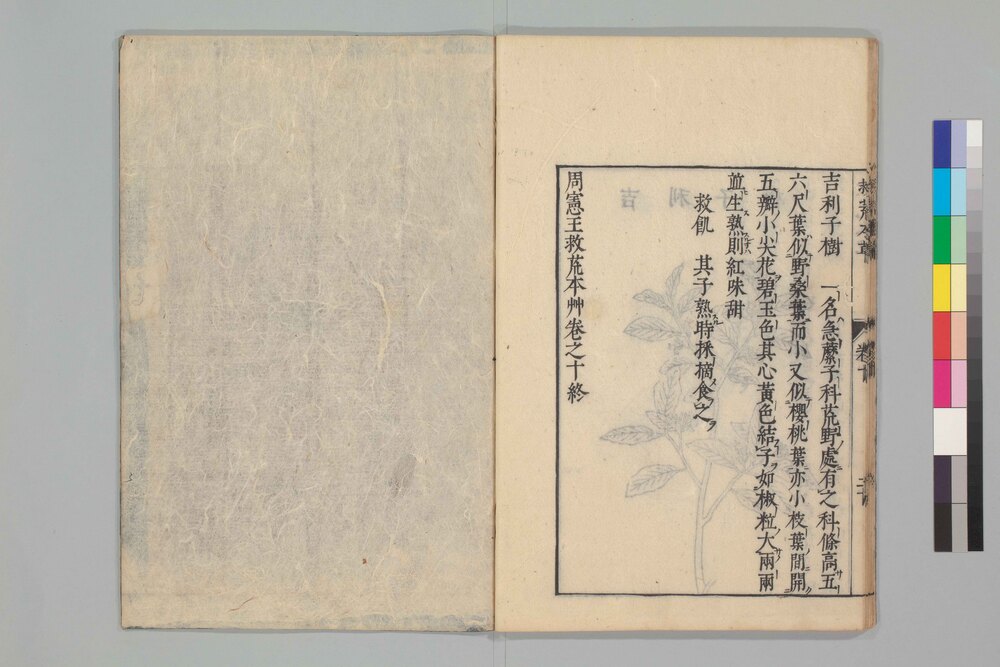 吉利子樹　一名急䕷子科荒野處有之科條高五
六尺葉似野桑葉而小又似櫻桃葉亦小枝葉間開
五瓣小尖花碧玉色其心黃色結子如椒粒大兩兩
並生熟則紅味甜
救飢　其子熟時採摘食之
周憲王救荒本艸卷之十終